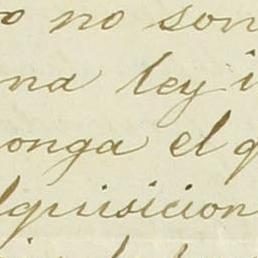 o no son
na ley i
onga el q
lquisicion